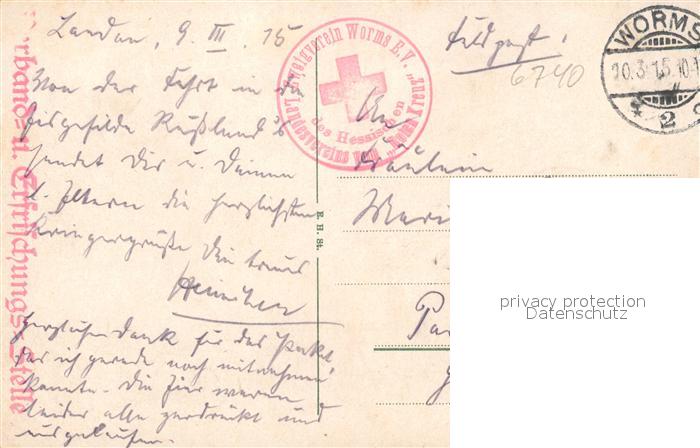 Landau, 9. III. 15
Von der Fahrt in die
Eisgefilde Rußland's
sendet Dir u. Deinen
l. Eltern die herzlichsten
Kriegergrüße Dein treuer
Herzlichen Dank für das Paket,
das ich gerade noch mitnehmen
konnte. Die Eier waren
leider alle zerdrückt und
ausgelaufen.
Verband- u. Erfrischungs-Stelle
Zweigverein Worms E.V.
des Hessischen
Landesvereins vom „Roten Kreuz"
Feldpost.
6740
WORMS
10.3.15.10-1
* 2
An
Fräulein
E. H. St.
privacy protection
Datenschutz